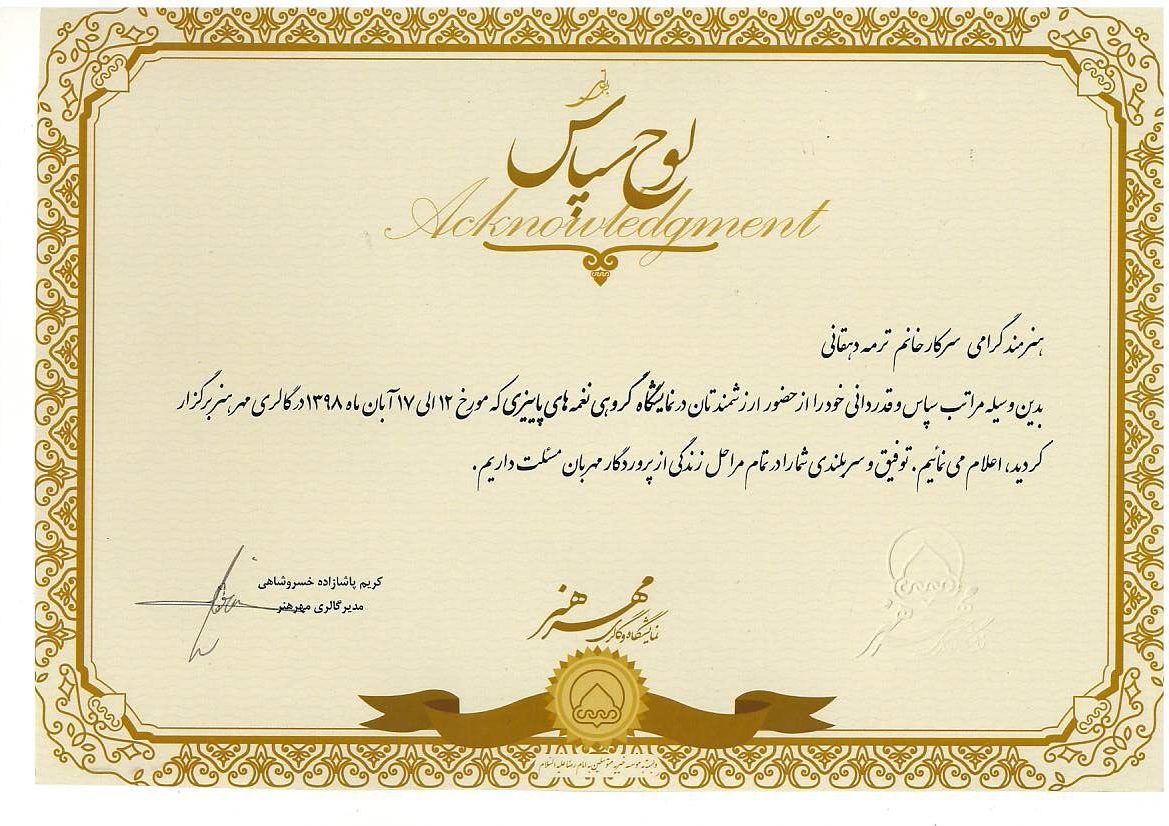 لوح سپاس
Acknowledgment
هنرمند گرامی سرکار خانم ترمه دهقانی
بدین وسیله مراتب سپاس و قدردانی خود را از حضور ارزشمندتان در نمایشگاه گروهی نغمه های پاییزی که مورخ ۱۲ الی ۱۷ آبان ماه ۱۳۹۸ در گالری مهر هنر برگزار
گردید، اعلام می نمائیم. توفیق و سربلندی شما را در تمام مراحل زندگی از پروردگار مهربان مسئلت داریم.
کریم پاشازاده خسروشاهی
مدیر گالری مهرهنر
مهر هنر
نمایشگاه و گالری
وابسته به موسسه خیریه متوسلین به امام رضا علیه السلام